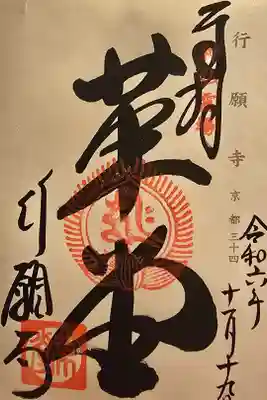 行願寺 京都三十四
令和六年
奉拝
革堂
行願寺